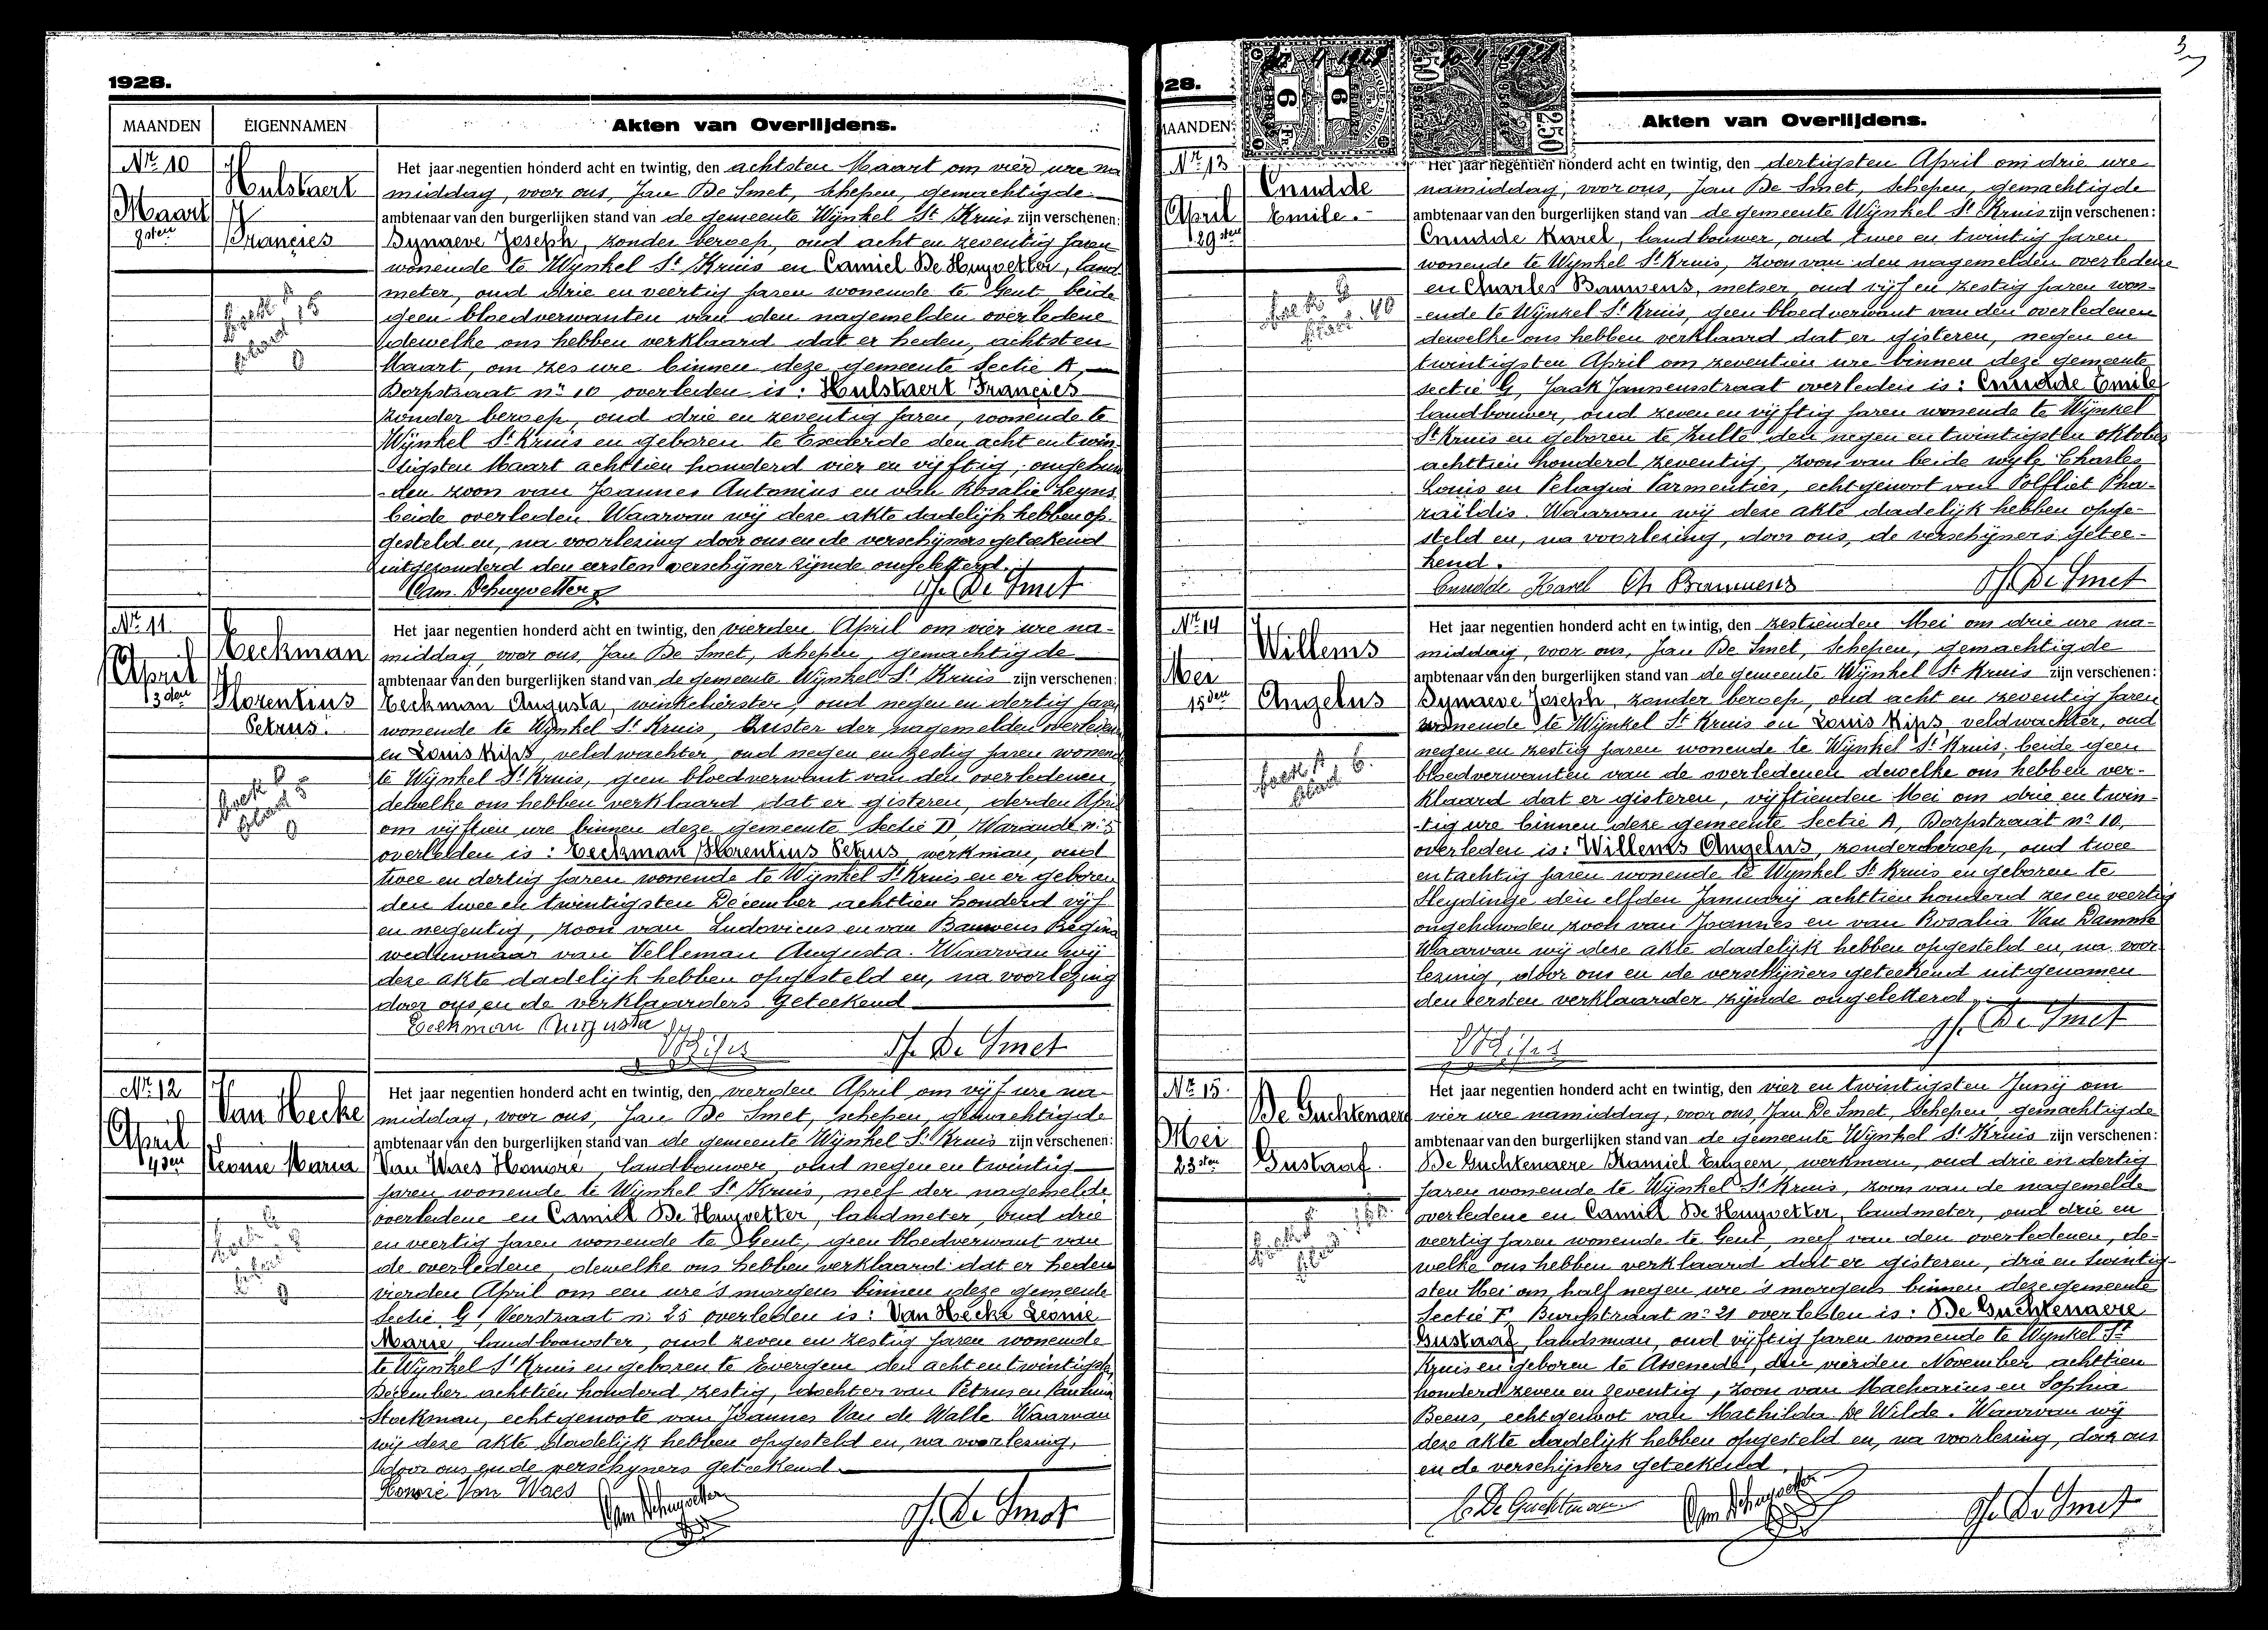 1928.
MAANDEN EIGENNAMEN Akten van Overlijdens.
Nr. 10
Hulstaert
Maart
8sten
Francies
Het jaar negentien honderd acht en twintig, den achtsten Maart om vier ure na
middag, voor ons, Jan De Smet, schepen, gemachtigde
ambtenaar van den burgerlijken stand van de gemeente Wynkel St Kruis zijn verschenen:
Dynaeve Joseph, zonder beroep, oud acht en zeventig jaren
wonende te Wynkel St Kruis en Camiel De Huyvetter, land
meter, oud drie en veertig jaren wonende te Gent, beide
geen bloedverwanten van den nagemelden overledene
dewelke ons hebben verklaard dat er heden, achtsten
Maart, om zes ure binnen deze gemeente Sectie A,
Dorpstraat no 10 overleden is: Hulstaert Francies
zonder beroep, oud drie en zeventig jaren, wonende te
Wijnkel St Kruis en geboren te den acht en twin
tigsten Maart achttien honderd vier en vijftig, ongehuw
den zoon van Joannes Antonius en van Rosalie Leyns
beide overleden Waarvan wij deze akte dadelijk hebben op
gesteld en, na voorlezing door ons en de verschijners geteekend
uitgezonderd den eersten verschijner zijnde ongeletterd.
Cam. Dehuyvetter J. De Smet
Nr. 11
Eeckman
April
3den
Florentius
Petrus.
boek
blad 5
Het jaar negentien honderd acht en twintig, den vierden April om vier ure na-
middag, voor ons, Jan De Smet, schepen, gemachtigde
ambtenaar van den burgerlijken stand van de gemeente Wynkel St Kruis zijn verschenen:
Eeckman Augusta, winkelierster, oud negen en dertig jaren
wonende te Wynkel St Kruis, zuster der nagemelden overleden
en Louis Kips veldwachter, oud negen en zestig jaren wonend
te Wijnkel St Kruis, geen bloedverwant van den overledenen,
dewelke ons hebben verklaard dat er gisteren, derden April
om vijftien ure binnen deze gemeente Sectie D, Warande n: 5
overleden is: Eeckman Florentius Petrus werkman, oud
twee en dertig jaren wonende te Wijnkel St Kruis en er geboren
den twee en twintigsten December achttien honderd vijf
en negentig, zoon van Ludovicus en van Bauwens Regina
weduwnaar van Velleman Augusta. Waarvan wij
deze akte dadelijk hebben opgesteld en, na voorlezing
door ons en de verklaarders geteekend
Eeckman Augusta
Kips J. De Smet
Nr. 12
Van Hecke
April
4den
Leonie Maria
Het jaar negentien honderd acht en twintig, den vierden April om vijf ure na-
middag, voor ons, Jan De Smet, schepen, gemachtigde
ambtenaar van den burgerlijken stand van de gemeente Wynkel St Kruis zijn verschenen:
Van Waes Honoré, landbouwer, oud negen en twintig
jaren wonende te Wijnkel St Kruis, neef der nagemelde
overledene en Camiel De Huyvetter, landmeter, oud drie
en veertig jaren wonende te Gent, geen bloedverwant van
de overledene, dewelke ons hebben verklaard dat er heden
vierden April om een ure 's morgens binnen deze gemeente
Sectie G, Veerstraat n: 25 overleden is: Van Hecke Leonie
Marie, landbouwster, oud zeven en zestig jaren wonende
te Wijnkel St Kruis en geboren te Evergem den acht en twintigste
December achttien honderd zestig, dochter van Petrus en
Stockman, echtgenoote van Joannes Van de Walle Waarvan
wij deze akte dadelijk hebben opgesteld en, na voorlezing,
door ons en de verschijners geteekend.
Honoré Van Waes
Cam Dehuyvetter J. De Smet
3
28.
MAANDEN: Akten van Overlijdens.
Nr. 13
Cnudde
April
29sten
Emile.
Het jaar negentien honderd acht en twintig, den dertigsten April om drie ure
namiddag, voor ons, Jan De Smet, Schepen, gemachtigde
ambtenaar van den burgerlijken stand van de gemeente Wijnkel St Kruis zijn verschenen:
Cnudde Karel, landbouwer, oud twee en twintig jaren
wonende te Wijnkel St Kruis, zoon van den nagemelden overledene
en Charles Bauwens, metser, oud vijf en zestig jaren won-
ende te Wijnkel St Kruis, geen bloedverwant van den overledenen
dewelke ons hebben verklaard dat er gisteren, negen en
twintigsten April om zeventien ure binnen deze gemeente
sectie G, Jaak Janneusstraat overleden is: Cnudde Emile
landbouwer, oud zeven en vijftig jaren wonende te Wijnkel
St Kruis en geboren te Zulte den negen en twintigsten oktober
achttien honderd zeventig, zoon van beide wijle Charles
Louis en Pelagia Parmentier, echtgenoot van Polfliet Pha-
raïldis. Waarvan wij deze akte dadelijk hebben opge-
steld en, na voorlesing, door ons, de verschijners getee-
kend.
Cnudde Karel Ch Bauwens J. De Smet
Nr. 14
Willems
Mei
15den
Angelus
Het jaar negentien honderd acht en twintig, den zestienden Mei om drie ure na-
middag, voor ons, Jan De Smet, Schepen, gemachtigde
ambtenaar van den burgerlijken stand van de gemeente Wijnkel St Kruis zijn verschenen:
Dynaeve Joseph, zonder beroep, oud acht en zeventig jaren
wonende te Wijnkel St Kruis en Louis Kips, veldwachter, oud
negen en zestig jaren wonende te Wijnkel St Kruis, beide geen
bloedverwanten van de overledenen dewelke ons hebben ver-
klaard dat er gisteren, vijftienden Mei om drie en twin-
tig ure binnen deze gemeente Sectie A, Dorpstraat no 10,
overleden is: Willems Angelus, zonder beroep, oud twee
en tachtig jaren wonende te Wynkel St Kruis en geboren te
Sleydinge den elfden Januarij achttien honderd zes en veertig
ongehuwden zoon van Joannes en van Rosalia Van Damme
Waarvan wij deze akte dadelijk hebben opgesteld en, na voor
lezing, door ons en de verschijners geteekend uitgenomen
den eersten verklaarder zijnde ongeletterd.
Kips J. De Smet
Nr. 15.
De Guchtenaere
Mei
23sten
Gustaaf.
Het jaar negentien honderd acht en twintig, den vier en twintigsten Junij om
vier ure namiddag, voor ons, Jan De Smet, Schepen gemachtigde
ambtenaar van den burgerlijken stand van de gemeente Wijnkel St Kruis zijn verschenen:
De Guchtenaere Kamiel Eugeen, werkman, oud drie en dertig
jaren wonende te Wijnkel St Kruis, zoon van de nagemelde
overledene en Camiel De Huyvetter, landmeter, oud drie en
veertig jaren wonende te Gent, neef van den overledenen, de-
welke ons hebben verklaard dat er gisteren, drie en twintig-
sten Mei om half negen ure 's morgens binnen deze gemeente
Sectie F, Burgstraat no: 21 overleden is: De Guchtenaere
Gustaaf, landsman, oud vijftig jaren wonende te Wynkel St
Kruis en geboren te Assenede, den vierden November achttien
honderd zeven en zeventig, zoon van Macharius en Sophia
Beens, echtgenoot van Mathilda De Wilde. Waarvan wij
deze akte dadelijk hebben opgesteld en, na voorlezing, door ons
en de verschijners geteekend.
C. De Guchtenaere Cam Dehuyvetter J. De Smet